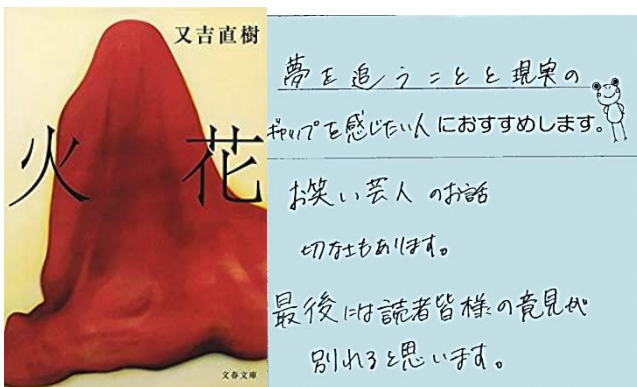 又吉直樹
火花
文春文庫
夢を追うことと現実の
ギャップを感じたい人におすすめします。
お笑い芸人のお話
切なさもあります。
最後には読者皆様の意見が
別れると思います。